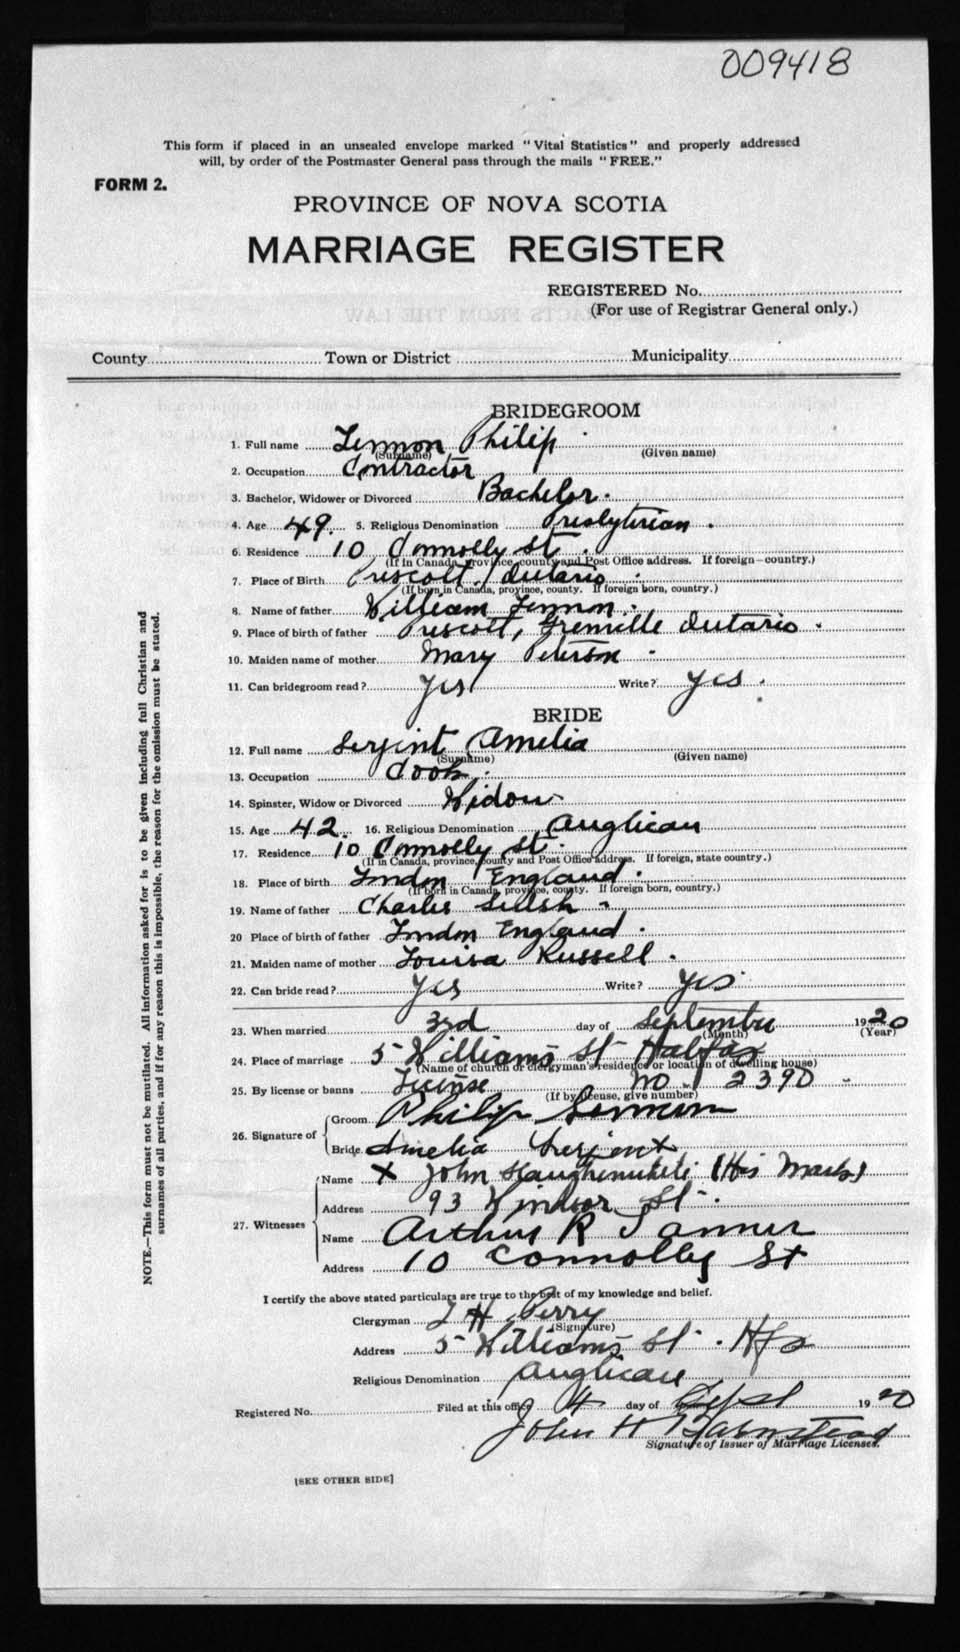 009418
This form if placed in an unsealed envelope marked "Vital Statistics" and properly addressed
will, by order of the Postmaster General pass through the mails "FREE."
FORM 2.
PROVINCE OF NOVA SCOTIA
MARRIAGE REGISTER
REGISTERED No.
(For use of Registrar General only.)
County Town or District Municipality
BRIDEGROOM
1. Full name Lennon Philip
(Surname) (Given name)
2. Occupation Contractor
3. Bachelor, Widower or Divorced Bachelor.
4. Age 49. 5. Religious Denomination Presbyterian.
6. Residence 10 Connolly St.
(If in Canada, province, county and Post Office address. If foreign—country.)
7. Place of Birth Prescott, Ontario
(If born in Canada, province, county. If foreign born, country.)
8. Name of father William Lennon.
9. Place of birth of father Prescott, Grenville Ontario.
10. Maiden name of mother Mary Peterson
11. Can bridegroom read? Yes Write? Yes.
BRIDE
12. Full name Serjint Amelia
(Surname) (Given name)
13. Occupation Cook.
14. Spinster, Widow or Divorced Widow
15. Age 42. 16. Religious Denomination Anglican
17. Residence 10 Connolly St.
(If in Canada, province, county and Post Office address. If foreign, state country.)
18. Place of birth London England.
(If born in Canada, province, county. If foreign born, country.)
19. Name of father Charles
20 Place of birth of father London England.
21. Maiden name of mother Louisa Russell.
22. Can bride read? Yes Write? Yes
23. When married 3rd day of September 1920
(Month) (Year)
24. Place of marriage 5 Williams St Halifax
(Name of church or clergyman's residence or location of dwelling house)
25. By license or banns License No. 2390
(If by license, give number)
26. Signature of Groom Philip Lennon
Bride. Amelia Serjent
27. Witnesses Name X John (His Mark)
Address 93 Windsor St.
Name Arthur R Tanner
Address 10 Connolly St
I certify the above stated particulars are true to the best of my knowledge and belief.
Clergyman H Perry
(Signature)
Address 5 Williams St. Hfx
Religious Denomination Anglican
Registered No. Filed at this office 4 day of Sept 1920
John H Barnstead
Signature of Issuer of Marriage Licenses.
[SEE OTHER SIDE]
NOTE.—This form must not be mutilated. All information asked for is to be given including full Christian and
surnames of all parties, and if for any reason this is impossible, the reason for the omission must be stated.